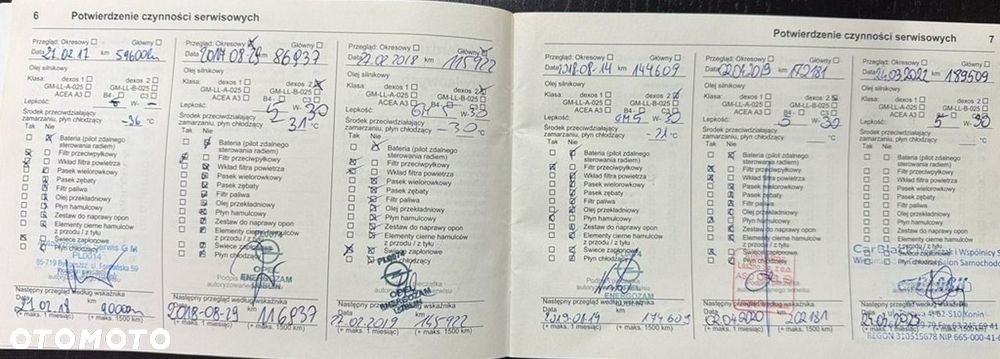 6 Potwierdzenie czynności serwisowych
Przegląd: Okresowy Główny
Data 21.02.17 km 59600km
Olej silnikowy
Klasa: dexos 1 dexos 2
GM-LL-A-025 GM-LL-B-025
ACEA A3 B4- C3
Lepkość: W-
Środek przeciwdziałający
zamarzaniu, płyn chłodzący -36 °C
Tak Nie
Bateria (pilot zdalnego
sterowania radiem)
Filtr przeciwpyłkowy
Wkład filtra powietrza
Pasek wielorowkowy
Pasek zębaty
Filtr paliwa
Olej przekładniowy
Płyn hamulcowy
Zestaw do naprawy opon
Elementy cierne hamulców
z przodu / z tyłu
Świece zapłonowe
Płyn chłodzący
PL0014
Następny przegląd według wskaźnika
Data km
21.02.18
(+ maks. 1 miesiąc) (+ maks. 1500 km)
Przegląd: Okresowy Główny
Data 2017 08 29 86837
Olej silnikowy
Klasa: dexos 1 dexos 2
GM-LL-A-025 GM-LL-B-025
ACEA A3 B4- C3
Lepkość: 5 W-30
Środek przeciwdziałający
zamarzaniu, płyn chłodzący -31 °C
Tak Nie
Bateria (pilot zdalnego
sterowania radiem)
Filtr przeciwpyłkowy
Wkład filtra powietrza
Pasek wielorowkowy
Pasek zębaty
Filtr paliwa
Olej przekładniowy
Płyn hamulcowy
Zestaw do naprawy opon
Elementy cierne hamulców
z przodu / z tyłu
Świece zapłonowe
Płyn chłodzący
PL0014
OPEL
ENERGOZAM
Następny przegląd według wskaźnika
Data km
2018-08-29 116837
(+ maks. 1 miesiąc) (+ maks. 1500 km)
Przegląd: Okresowy Główny
Data 27.02.2018 km 115922
Olej silnikowy
Klasa: dexos 1 dexos 2
GM-LL-A-025 GM-LL-B-025
ACEA A3 B4- C3
Lepkość: W-30
Środek przeciwdziałający
zamarzaniu, płyn chłodzący -30 °C
Tak Nie
Bateria (pilot zdalnego
sterowania radiem)
Filtr przeciwpyłkowy
Wkład filtra powietrza
Pasek wielorowkowy
Pasek zębaty
Filtr paliwa
Olej przekładniowy
Płyn hamulcowy
Zestaw do naprawy opon
Elementy cierne hamulców
z przodu / z tyłu
Świece zapłonowe
Płyn chłodzący
PL0014
OPEL
ENERGOZAM
Następny przegląd według wskaźnika
Data km
27.02.2019 145922
(+ maks. 1 miesiąc) (+ maks. 1500 km)
Potwierdzenie czynności serwisowych 7
Przegląd: Okresowy Główny
Data 2018-08-14 km 144609
Olej silnikowy
Klasa: dexos 1 dexos 2
GM-LL-A-025 GM-LL-B-025
ACEA A3 B4- C3
Lepkość: GM5 W-30
Środek przeciwdziałający
zamarzaniu, płyn chłodzący °C
Tak Nie
Bateria (pilot zdalnego
sterowania radiem)
Filtr przeciwpyłkowy
Wkład filtra powietrza
Pasek wielorowkowy
Pasek zębaty
Filtr paliwa
Olej przekładniowy
Płyn hamulcowy
Zestaw do naprawy opon
Elementy cierne hamulców
z przodu / z tyłu
Świece zapłonowe
Płyn chłodzący
ENERGOZAM
Następny przegląd według wskaźnika
Data km
174609
(+ maks. 1 miesiąc) (+ maks. 1500 km)
Przegląd: Okresowy Główny
Data 02.04.2019 km 172181
Olej silnikowy
Klasa: dexos 1 dexos 2
GM-LL-A-025 GM-LL-B-025
ACEA A3 B4- C3
Lepkość: 5 W-30
Środek przeciwdziałający
zamarzaniu, płyn chłodzący °C
Tak Nie
Bateria (pilot zdalnego
sterowania radiem)
Filtr przeciwpyłkowy
Wkład filtra powietrza
Pasek wielorowkowy
Pasek zębaty
Filtr paliwa
Olej przekładniowy
Płyn hamulcowy
Zestaw do naprawy opon
Elementy cierne hamulców
z przodu / z tyłu
Świece zapłonowe
Płyn chłodzący
Następny przegląd według wskaźnika
Data km
02.04.2020 202181
(+ maks. 1 miesiąc) (+ maks. 1500 km)
Przegląd: Okresowy Główny
Data 24.03.2022 km 189509
Olej silnikowy
Klasa: dexos 1 dexos 2
GM-LL-A-025 GM-LL-B-025
ACEA A3 B4- C3
Lepkość: 5 W-30
Środek przeciwdziałający
zamarzaniu, płyn chłodzący °C
Tak Nie
Bateria (pilot zdalnego
sterowania radiem)
Filtr przeciwpyłkowy
Wkład filtra powietrza
Pasek wielorowkowy
Pasek zębaty
Filtr paliwa
Olej przekładniowy
Płyn hamulcowy
Zestaw do naprawy opon
Elementy cierne hamulców
z przodu / z tyłu
Świece zapłonowe
Płyn chłodzący
Następny przegląd według wskaźnika
62-510 Konin
REGON 310515678 NIP 665-000-41-
OTOMOTO